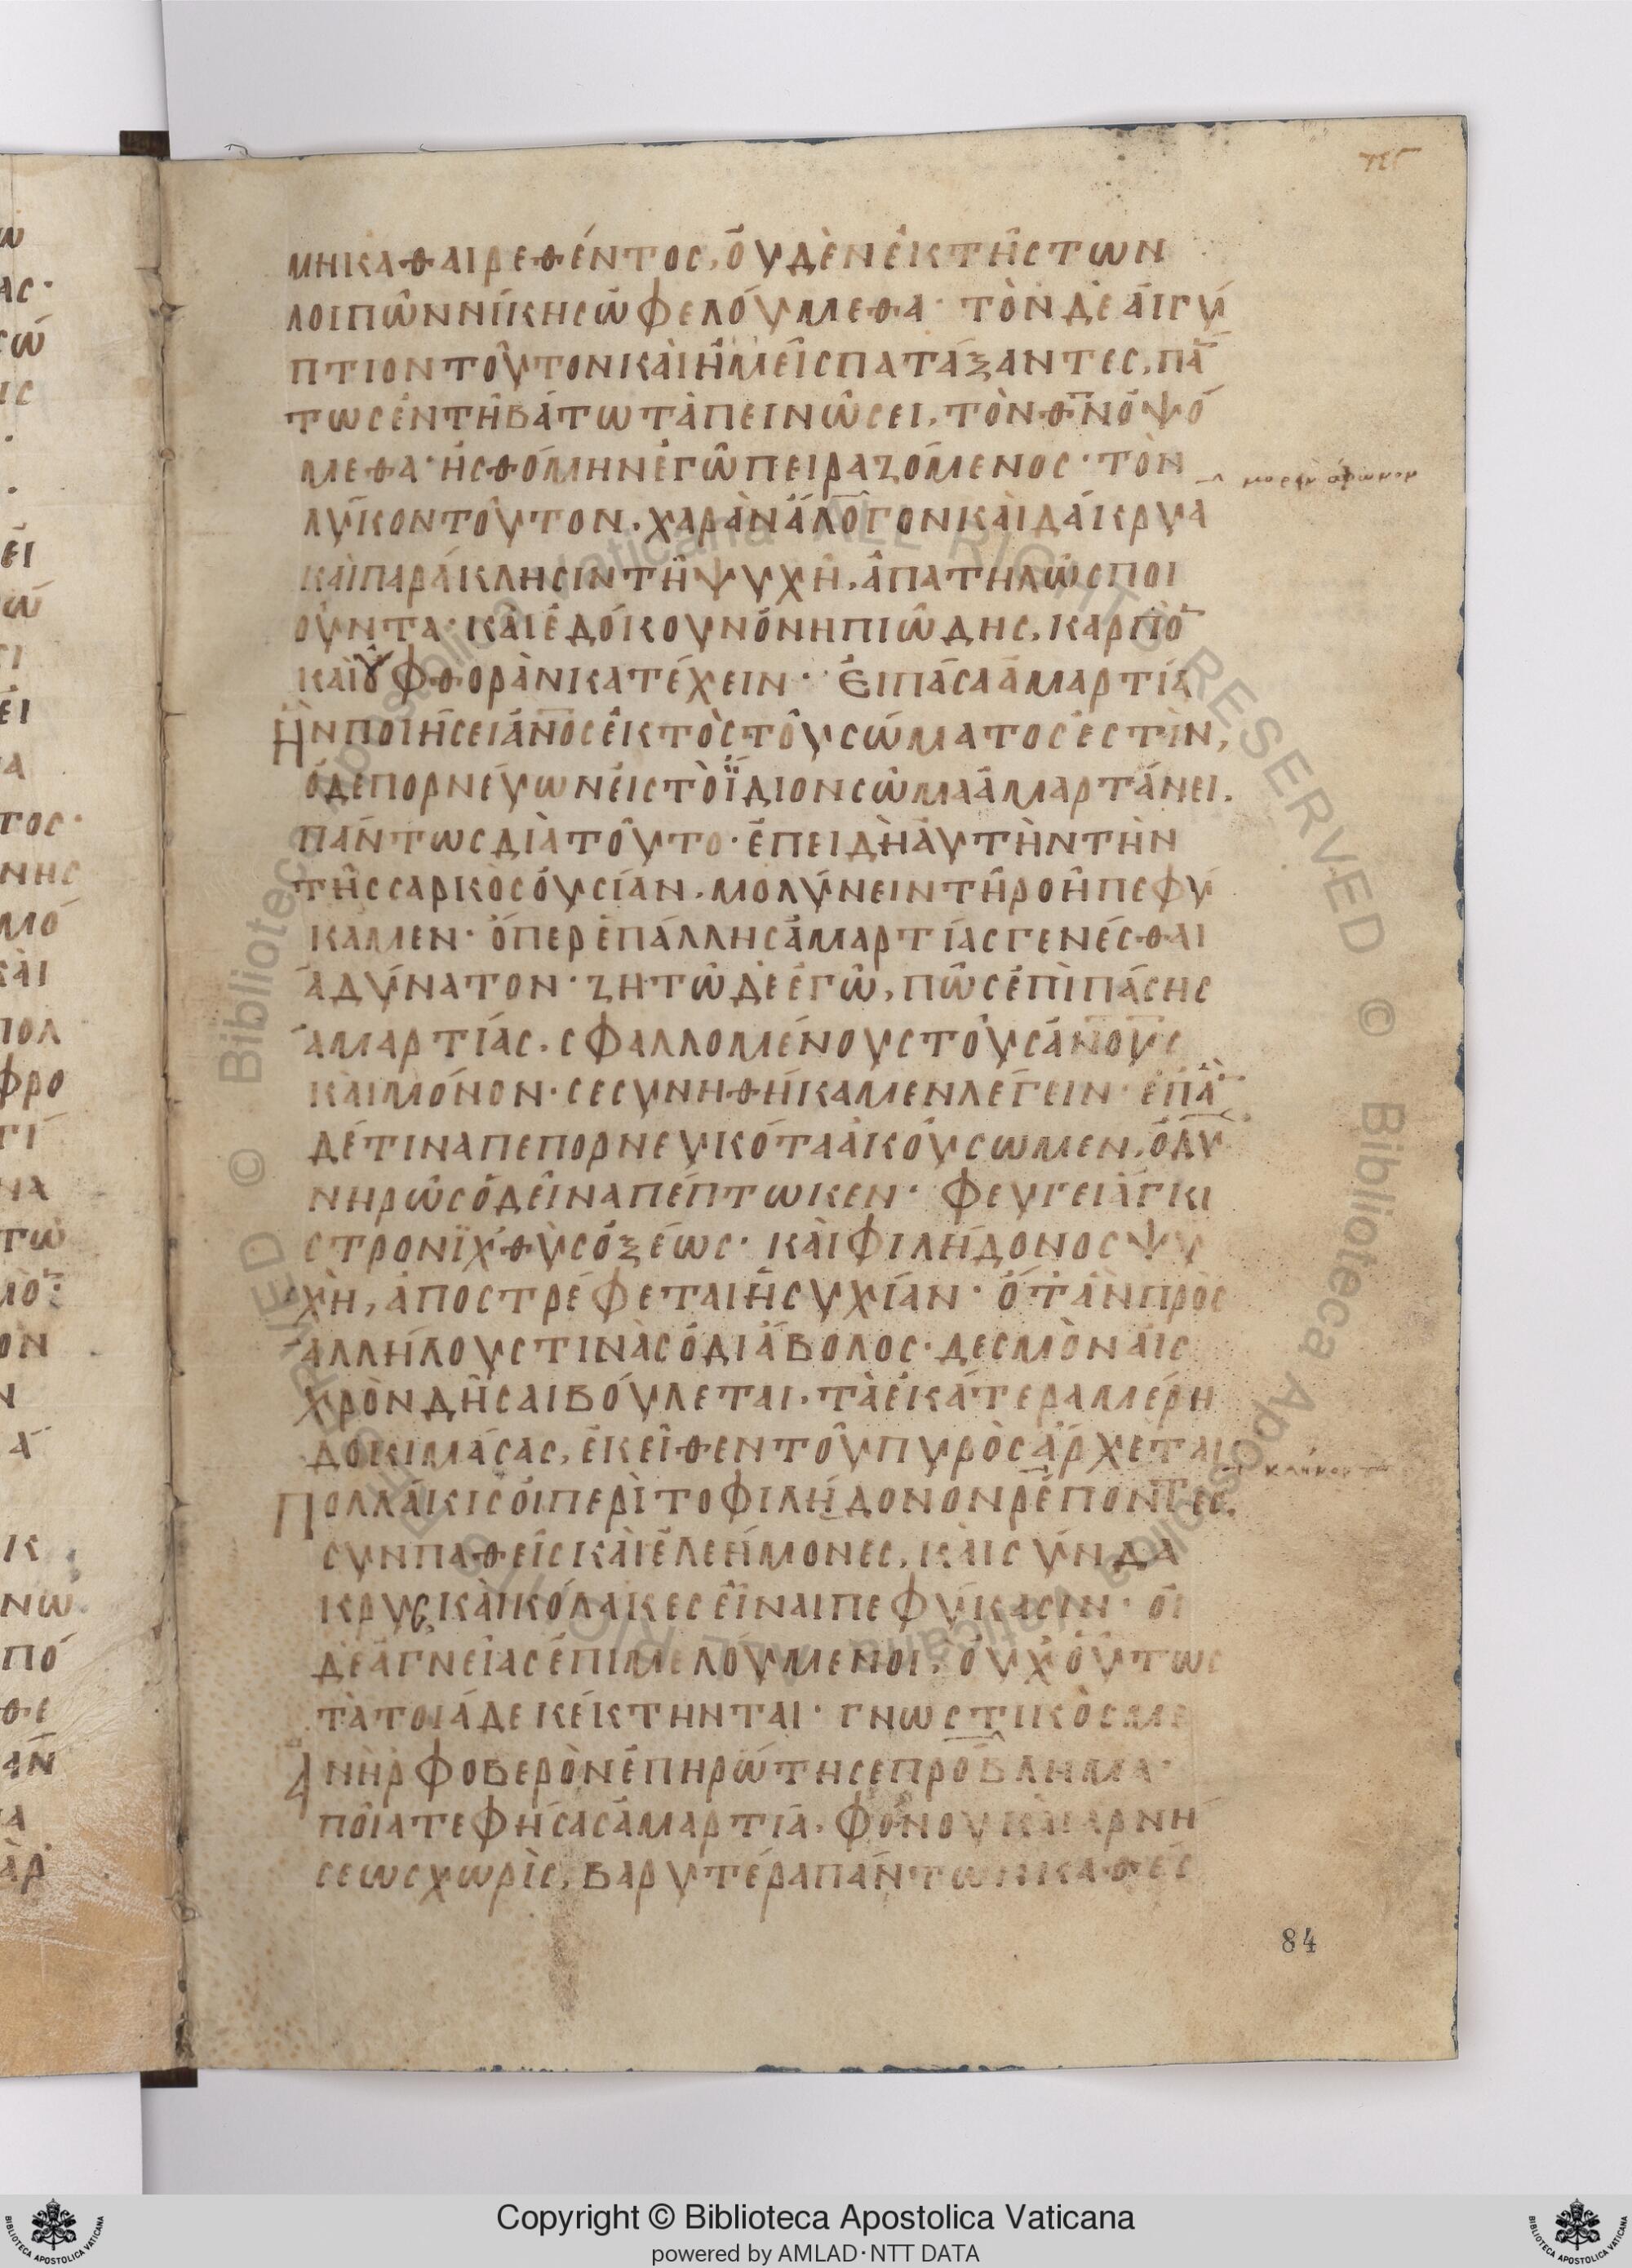 μὴ καθαιρεθέντος, οὐδὲν ἐκ τῆς τῶν
λοιπῶν νίκης ὠφελούμεθα· τὸν δὲ ἀιγύ
πτιον τοῦτον κὰι ἡμεῖς πατάξαντες, πά̅
τως ἐν τῆ βάτω ταπεινώσει, τὸν θ̅ν̅ ὀψό
μεθα· ἠσθόμην ἐγὼ πειραζόμενος· τὸν
λύκον τοῦτον. χαρὰν ἄλογον κὰι δάκρυα
κὰι παράκλησιν τῆ ψυχῆ, ἀπατηλῶς ποι
οῦντα· κὰι ἐδόκουν ὁ νηπιώδης, καρπὸ̅
κὰι ȣ̓ φθορὰν κατέχειν· Ει πᾶσα ἁμαρτία
Ἣν ποιήσει ἀ̅ν̅ο̅ς̅ ἐκτὸς τοῦ σώματος ἐστὶν,
ὁ δὲ πορνεύων ἐις τὸ ἴδιον σῶμα ἁμαρτάνει.
πάντως διὰ τοῦτο· ἐπειδὴ ἀυτὴν τὴν
τῆς σαρκὸς ὀυσίαν. μολύνειν τῆ ροῆ πεφύ
καμεν· ὅπερ ἐπ' ἄλλης ἁμαρτίας γενέσθαι
ἀδύνατον· ζητῶ δὲ ἐγὼ, πῶς ἐπὶ πάσης
ἁμαρτίας. σφαλλομένους τοὺς ἀ̅ν̅ο̅υ̅ς̅
κὰι μόνον· σεσυνηθήκαμεν λέγειν· ἐπὰ̅
δέ τινα πεπορνευκότα ἀκούσωμεν, ὀδυ
νηρῶς ὁ δεῖνα πέπτωκεν· φεύγει ἄγκι
στρον ἰχθὺς ὀξέως· κὰι φιλήδονος ψυ
χὴ, ἀποστρέφεται ἡσυχίαν· ὅτ' ἂν πρὸς
ἀλλήλους τινὰς ὁ διάβολος· δεσμὸν ἀισ
χρὸν δῆσαι βούλεται. τὰ ἑκάτερα μέρη
δοκιμάσας, ἐκεῖθεν τοῦ πυρὸς ἄρχεται
Πολλάκις ὁι περὶ το φιλήδονον ρέποντες.
συνπαθεῖς κὰι ἐλεήμονες, κὰι σύνδα
κρυς, κὰι κόλακες εἶναι πεφύκασιν· ὁι
δὲ ἁγνείας ἐπιμελούμενοι, ὀυχ' ὅυτως
τὰ τοιάδε κέκτηνται· γνωστικὸς με
Ἀνὴρ φοβερὸν ἐπηρώτησε πρόβλημα·
ποία τε φήσας ἁμαρτία, φόνου κὰι ἀρνή
σεως χωρὶς, βαρυτέρα πάντων καθές
84
Copyright © Biblioteca Apostolica Vaticana
powered by AMLAD·NTT DATA